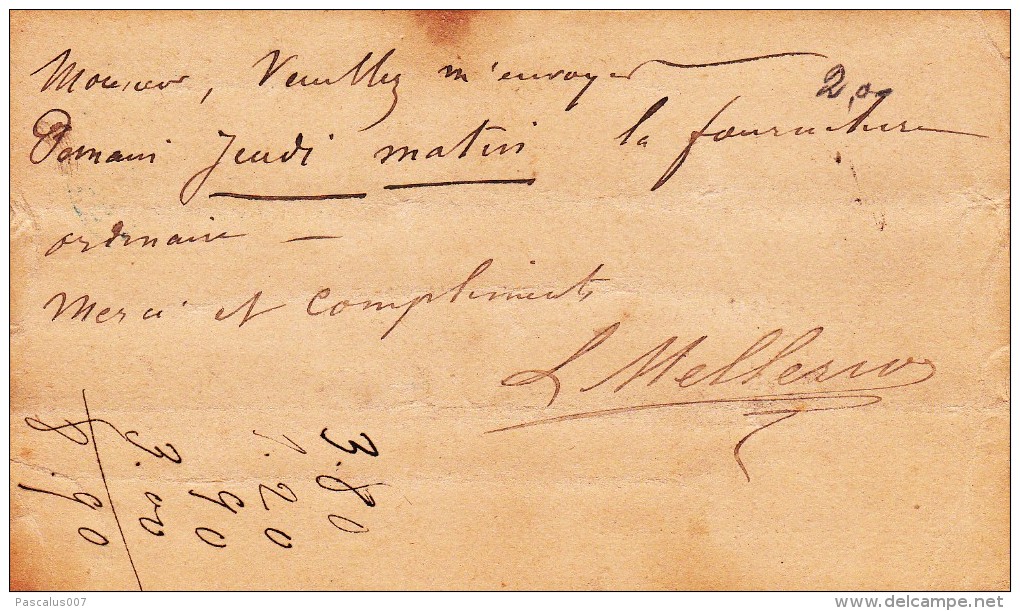 Monsieur, Veuillez m'envoyer
2,00
Demain Jeudi matin la fourniture
ordinaire —
Merci et compliments
L Mellerio
3.80
1.20
90
3.00
8.90
Pascalus007
www.delcampe.net